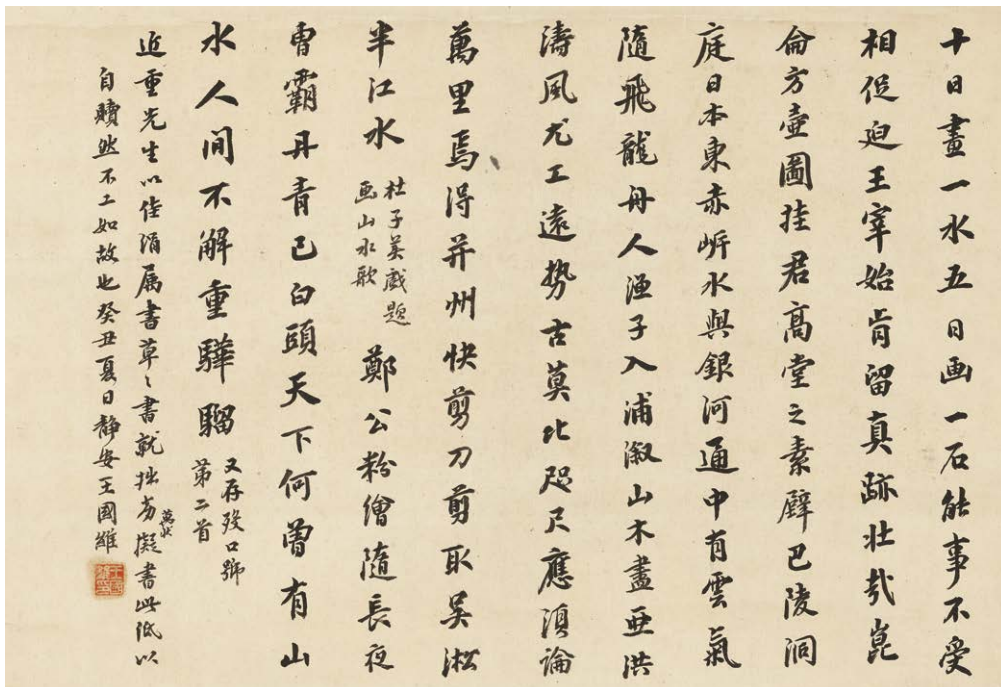 十日畫一水五日画一石能事不受
相促迫王宰始肯留真跡壯哉崑
侖方壺圖挂君高堂之素壁巴陵洞
庭日本東赤岍水與銀河通中有雲氣
隨飛龍舟人漁子入浦漵山木盡亞洪
濤風尤工遠勢古莫比咫尺應須論
萬里焉得并州快剪刀剪取吳淞
半江水
杜子美戲題
画山水歌
鄭公粉繪隨長夜
曹霸丹青已白頭天下何曾有山
水人間不解重驊騮
又存歿口號
第二首
近重先生以佳絹属書草々書就拙劣萬状擬書此紙以
自贖然不工如故也癸丑夏日靜安王國維
王國維印